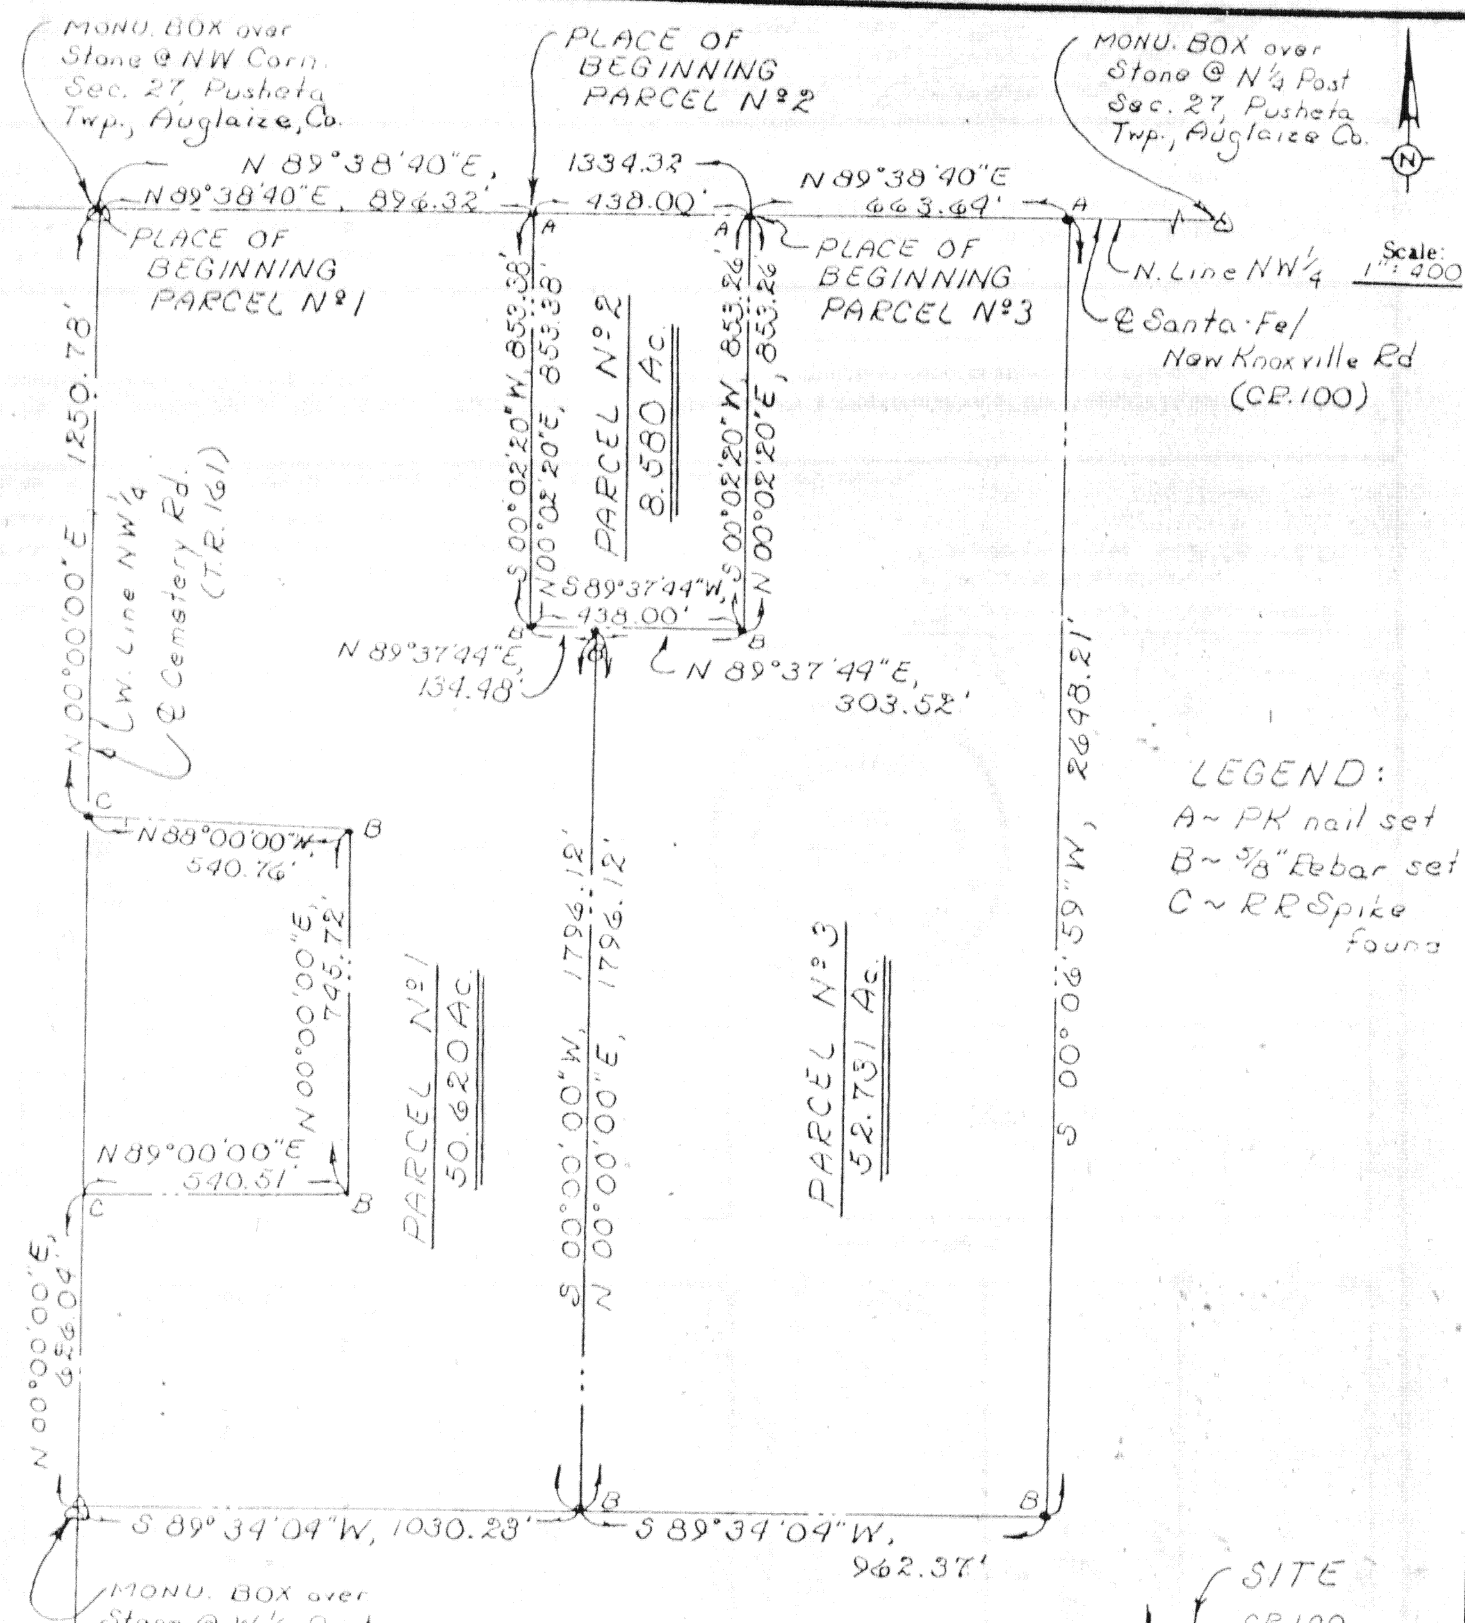 MONU. BOX over
Stone @ NW Corn.
Sec. 27, Pusheta
Twp., Auglaize, Co.
PLACE OF
BEGINNING
PARCEL Nº2
MONU. BOX over
Stone @ N¼ Post
Sec. 27, Pusheta
Twp., Auglaize Co.
N
N 89°38'40"E, 1334.32
N 89°38'40"E, 896.32'
438.00'
N 89°38'40"E
663.69'
A
A
A
PLACE OF
BEGINNING
PARCEL Nº1
PLACE OF
BEGINNING
PARCEL Nº3
N. Line NW¼
Scale:
1": 400
℄ Santa-Fe/
New Knoxville Rd
(CR.100)
N 00°00'00"E 1250.78'
W. Line NW¼
℄ Cemetery Rd.
(T.R. 161)
S 00°02'20"W, 853.38'
N 00°02'20"E, 853.38'
PARCEL Nº2
8.580 Ac.
S 00°02'20"W, 853.26'
N 00°02'20"E, 853.26'
S 89°37'44"W,
438.00'
B
B
B
N 89°37'44"E,
134.48'
N 89°37'44"E,
303.52'
S 00°06'59"W, 2648.21'
LEGEND:
A~ PK nail set
B~ 5/8" Rebar set
C~ RR Spike
found
C
N 88°00'00"W,
540.76'
B
N 00°00'00"E,
745.72'
PARCEL Nº1
50.620 Ac.
S 00°00'00"W, 1796.12'
N 00°00'00"E, 1796.12'
PARCEL Nº3
52.731 Ac.
N 89°00'00"E
540.51'
C
B
N 00°00'00"E,
626.04'
B
B
S 89°34'04"W, 1030.23'
S 89°34'04"W,
962.37'
MONU. BOX over
Stone @ W¼ Post
SITE
CR 100